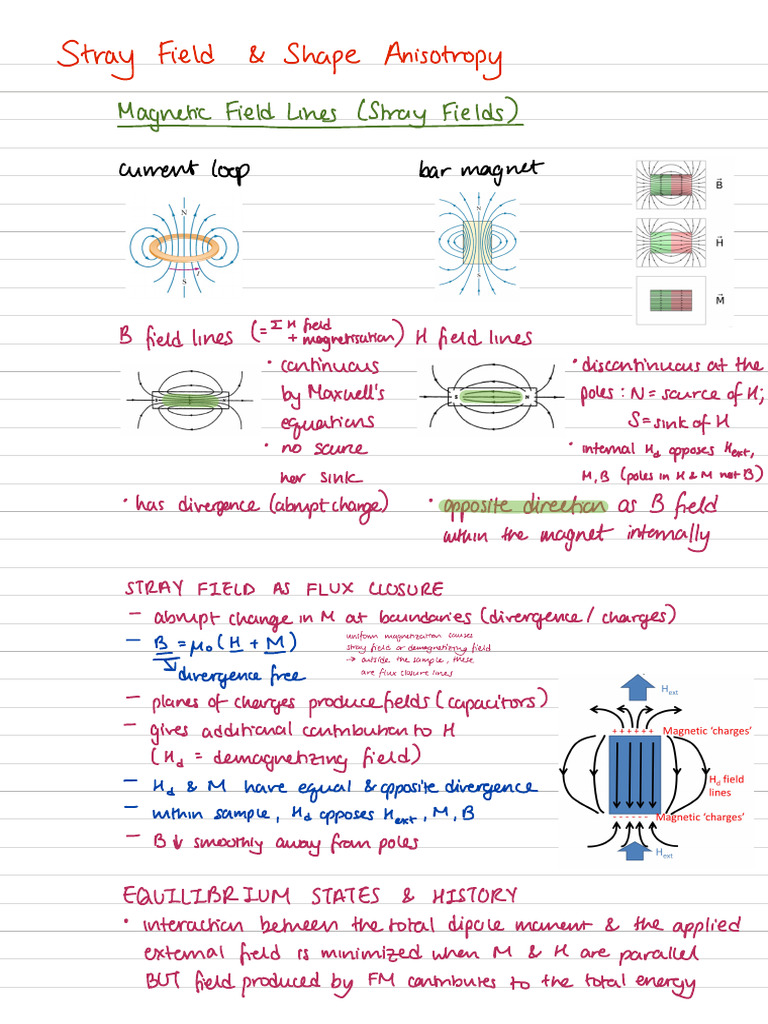 Stray Field & Shape Anisotropy
Magnetic Field Lines (Stray Fields)
current loop
bar magnet
N
I
S
N
S
B
H
M
B field lines (= Σ H field + magnetisation)
• continuous
by Maxwell's
equations
• no source
nor sink
• has divergence (abrupt change)
H field lines
S N
• discontinuous at the
poles : N = source of H;
S = sink of H
• internal Hd opposes Hext,
M, B (poles in H & M not B)
• opposite direction as B field
within the magnet internally
STRAY FIELD AS FLUX CLOSURE
– abrupt change in M at boundaries (divergence / charges)
– B = μ₀ (H + M)
↳ divergence free
uniform magnetization causes
stray field or demagnetizing field
→ outside the sample, these
are flux closure lines
– planes of charges produce fields (capacitors)
– gives additional contribution to H
(Hd = demagnetizing field)
– Hd & M have equal & opposite divergence
– within sample, Hd opposes Hext, M, B
– B ↓ smoothly away from poles
Hext
+ + + + + +
Magnetic 'charges'
Hd field
lines
- - - - - -
Magnetic 'charges'
Hext
EQUILIBRIUM STATES & HISTORY
• interaction between the total dipole moment & the applied
external field is minimized when M & H are parallel
BUT field produced by FM contributes to the total energy